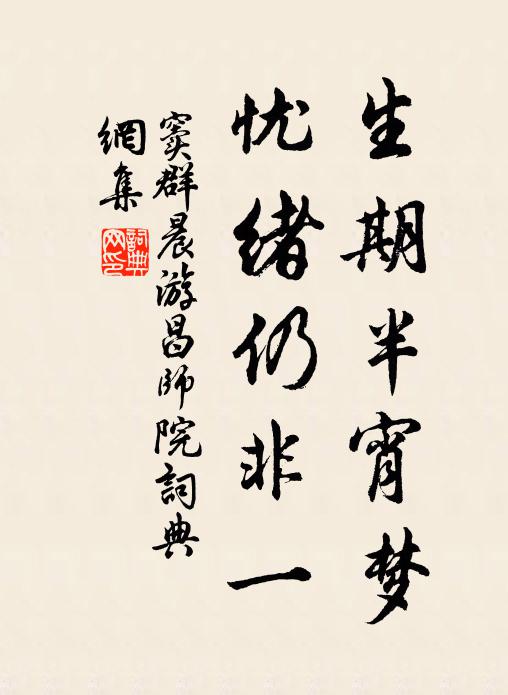 生期半宵梦
忧绪仍非一
窦群晨游昌師院詞典
網集
詞典
网印